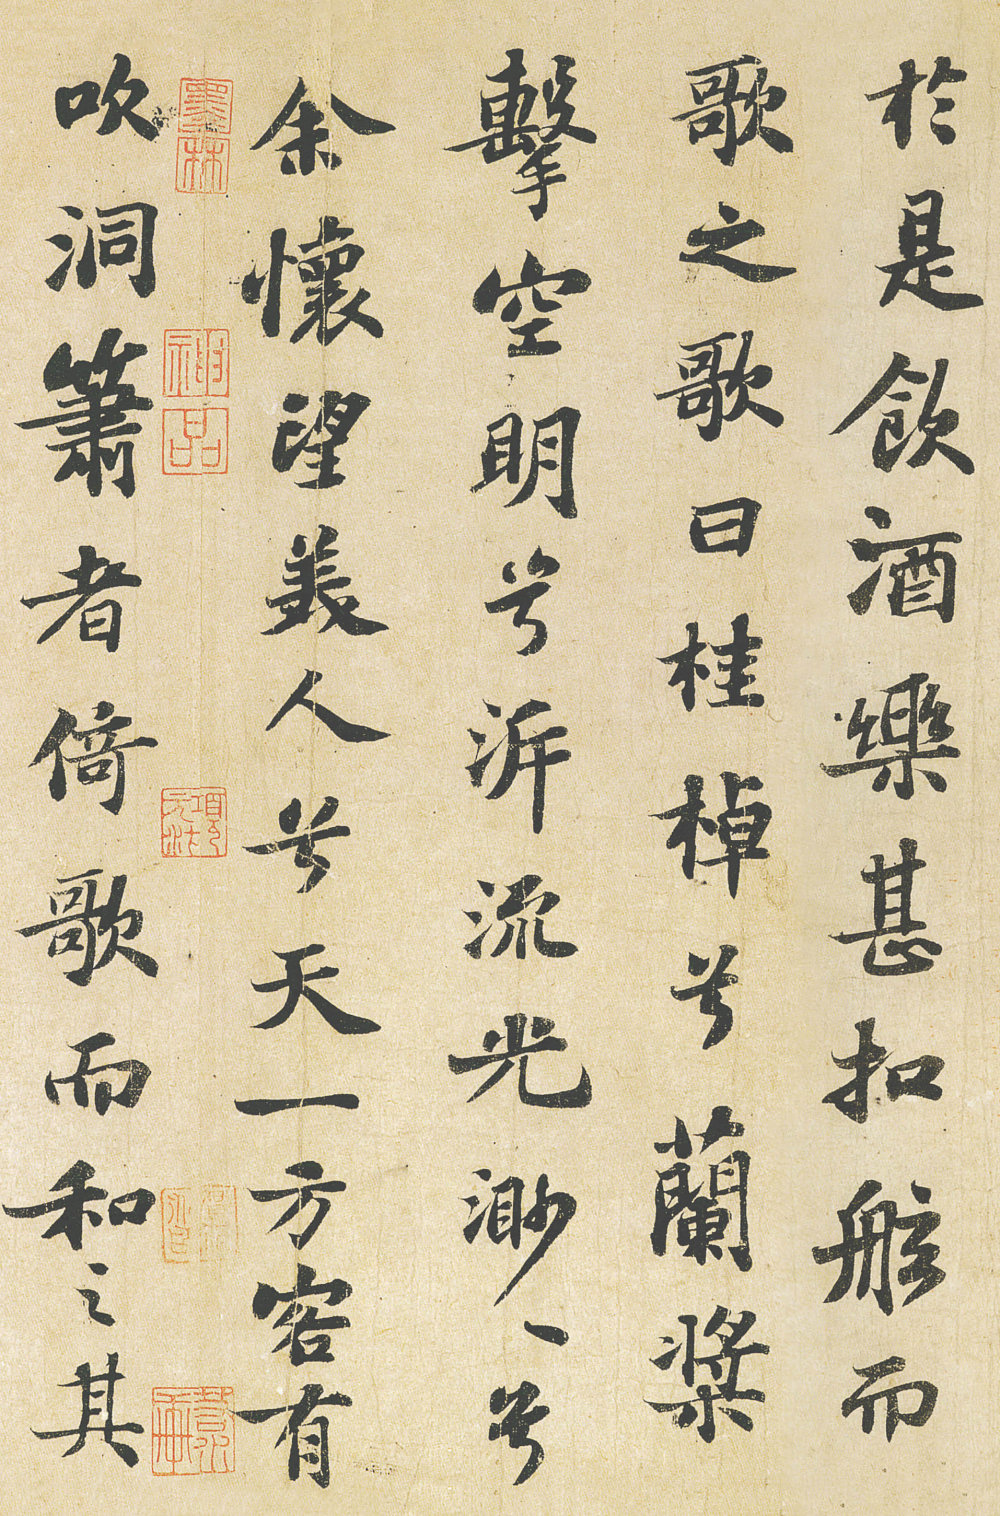 於是飲酒樂甚扣舷而
歌之歌曰桂棹兮蘭槳
擊空明兮泝流光渺〻兮
余懷望美人兮天一方客有
吹洞簫者倚歌而和之其
墨林
神品
項元汴